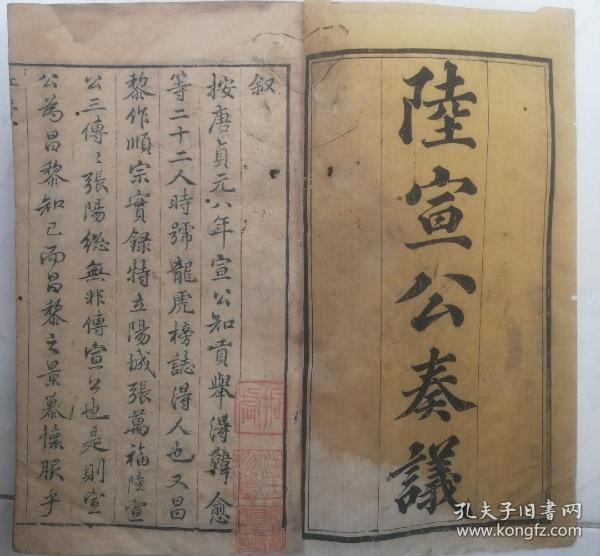 陸宣公奏議
叙
按唐貞元八年宣公知貢舉得韓愈
等二十二人時號龍虎榜誌得人也又昌
黎作順宗實錄特立陽城張萬福陸宣
公三傳〻張陽總無非傳宣公也是則宣
公為昌黎知己而昌黎之景慕懷服乎
孔夫子旧书网
www.kongfz.com